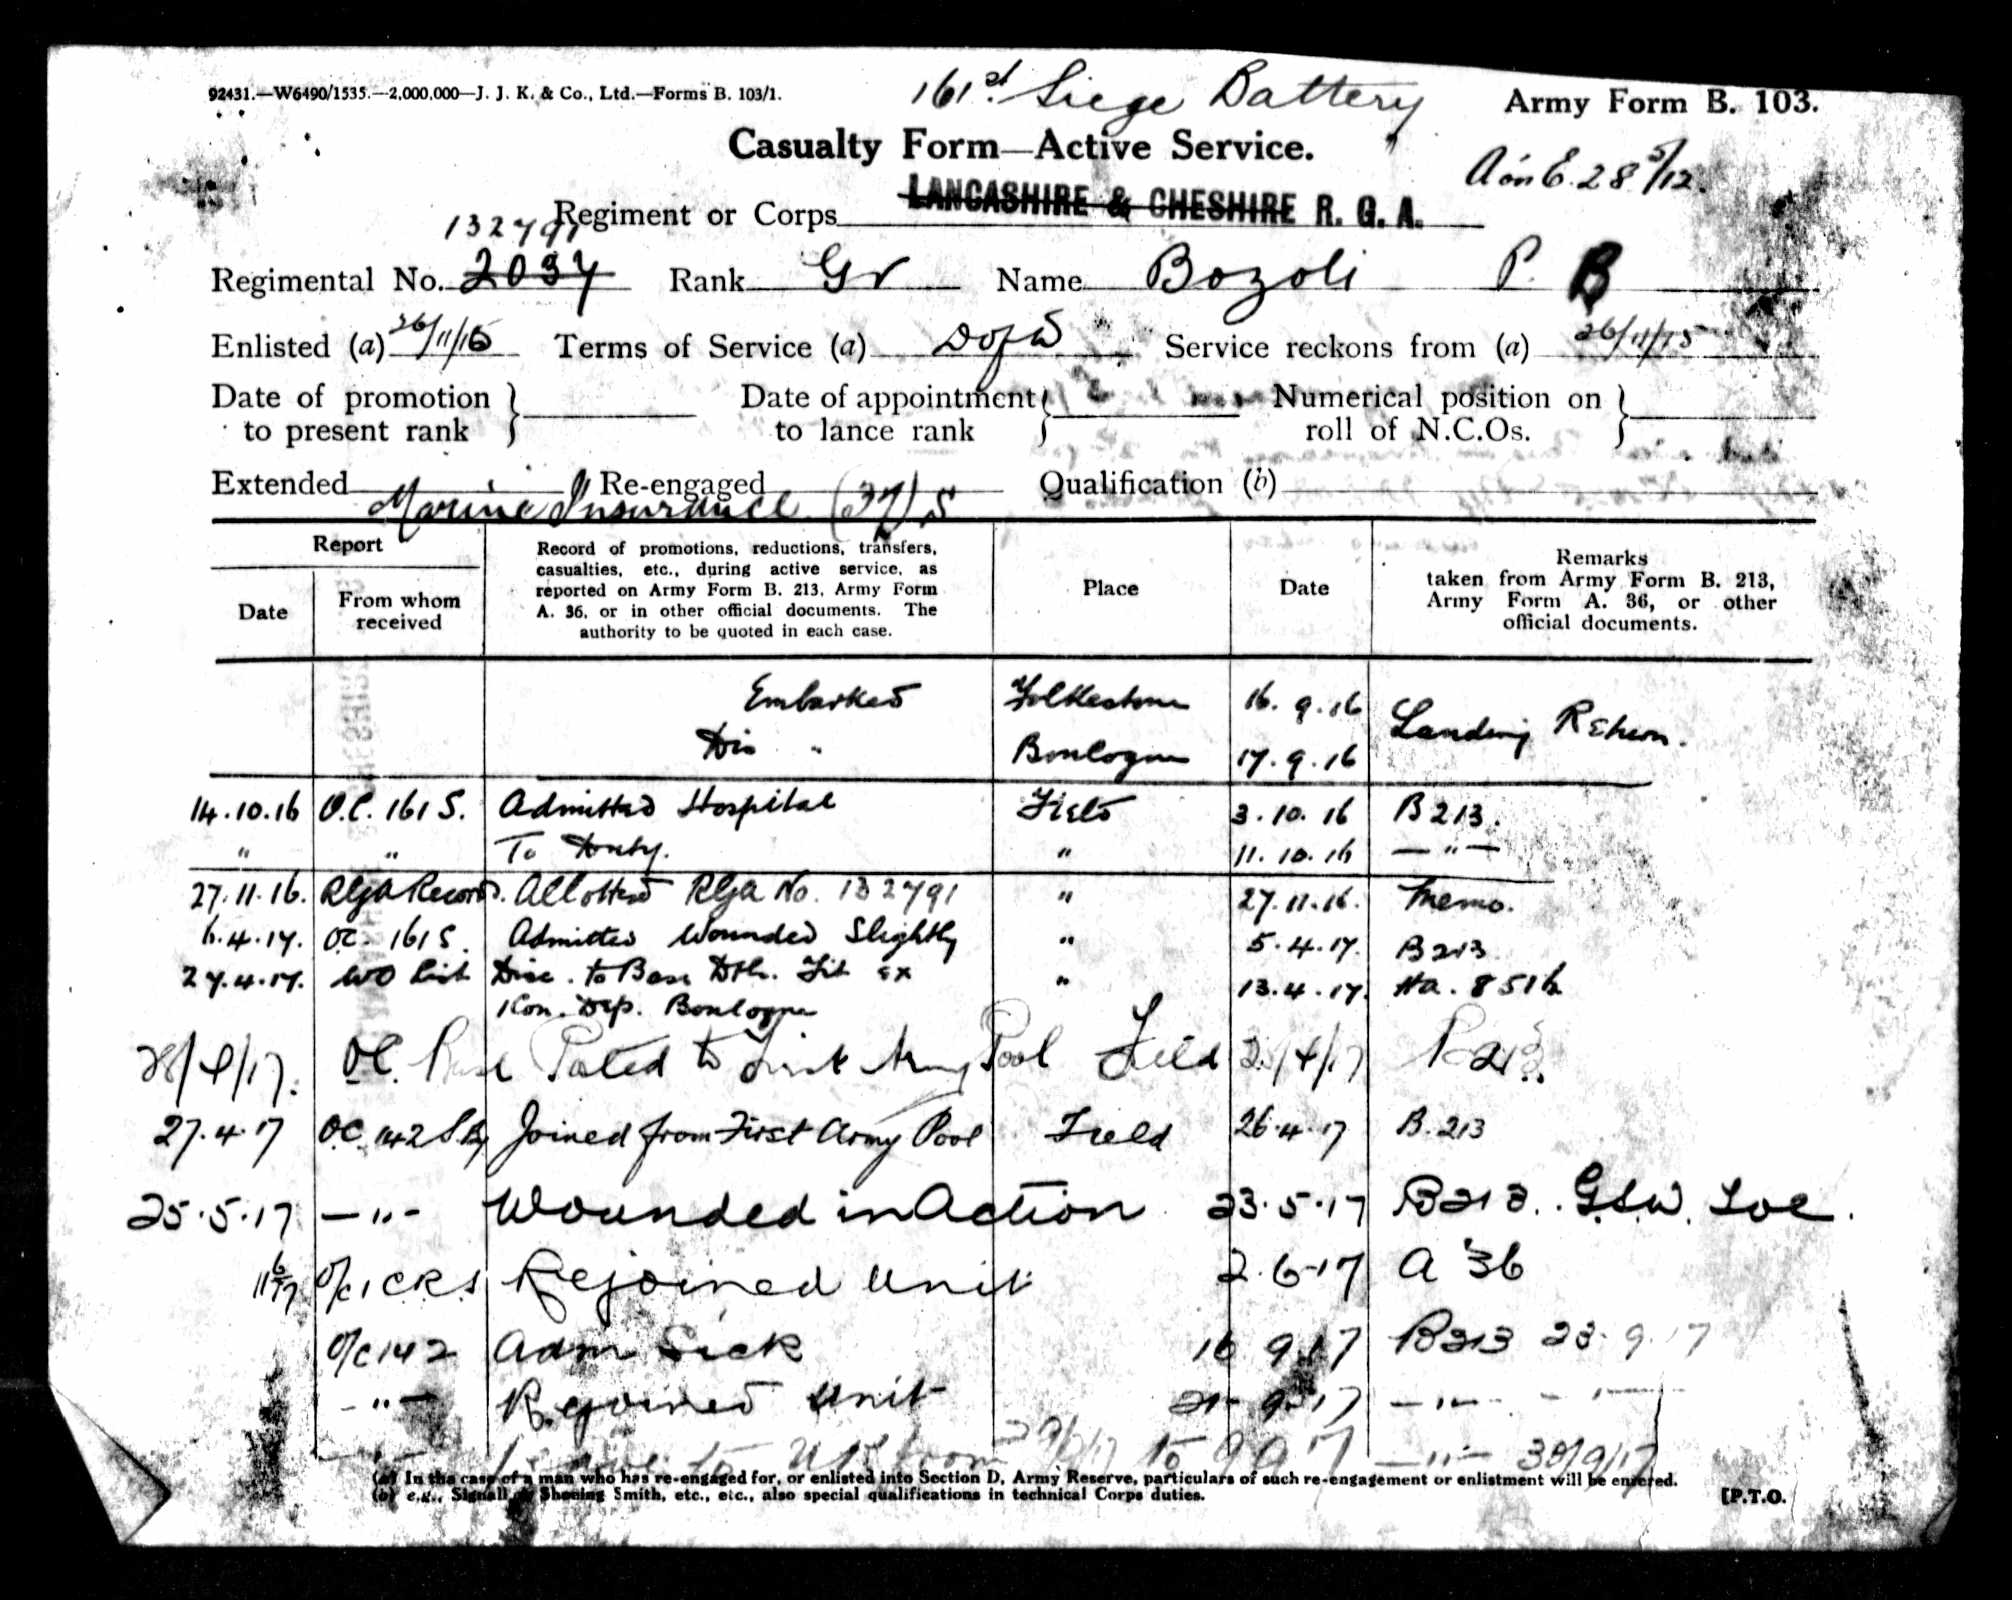 92431.—W6490/1535.—2,000,000—J. J. K. & Co., Ltd.—Forms B. 103/1.
161st Siege Battery
Army Form B. 103.
Casualty Form—Active Service.
LANCASHIRE & CHESHIRE R. G. A.
Regiment or Corps
132791
Regimental No. 2037 Rank Gr Name Bozoli P. B
Enlisted (a) 26/11/15 Terms of Service (a) DofW Service reckons from (a) 26/11/15
Date of promotion to present rank
Date of appointment to lance rank
Numerical position on roll of N.C.Os.
Extended Re-engaged Qualification (b)
Marine Insurance (37) S
Report
Date
From whom received
Record of promotions, reductions, transfers, casualties, etc., during active service, as reported on Army Form B. 213, Army Form A. 36, or in other official documents. The authority to be quoted in each case.
Place
Date
Remarks taken from Army Form B. 213, Army Form A. 36, or other official documents.
Embarked Folkestone 16.9.16
Landing Return.
Dis " Boulogne 17.9.16
14.10.16 O.C. 161 S. Admitted Hospital Field 3.10.16 B213.
" " To Duty. " 11.10.16 — " —
27.11.16. RGA Records. Allotted RGA No. 132791 " 27.11.16. Memo.
6.4.17. OC. 161 S. Admitted Wounded Slightly " 5.4.17. B213
27.4.17. WO List Disc. to Base Dtls. Fit ex " 13.4.17. Ha. 8516
Con. Dep. Boulogne
28/4/17. OC. Base Posted to First Army Pool Field /4/17 B213.
27.4.17 OC 142 S.By Joined from First Army Pool Field 26.4.17 B.213
25.5.17 — " — Wounded in Action 23.5.17 B213. G.S.W. Toe.
11/6/17 O/C 1 CRS Rejoined Unit 2.6.17 A 36
O/C 142 Adm Sick 16 9.17 B213 23.9.17
— " — Rejoined Unit 21.9.17 — " — — " —
— " — Leave to UK from to 9 17 — " — 30/9/17
(a) In the case of a man who has re-engaged for, or enlisted into Section D, Army Reserve, particulars of such re-engagement or enlistment will be entered.
(b) e.g., Signaller, Shoeing Smith, etc., etc., also special qualifications in technical Corps duties.
[P.T.O.